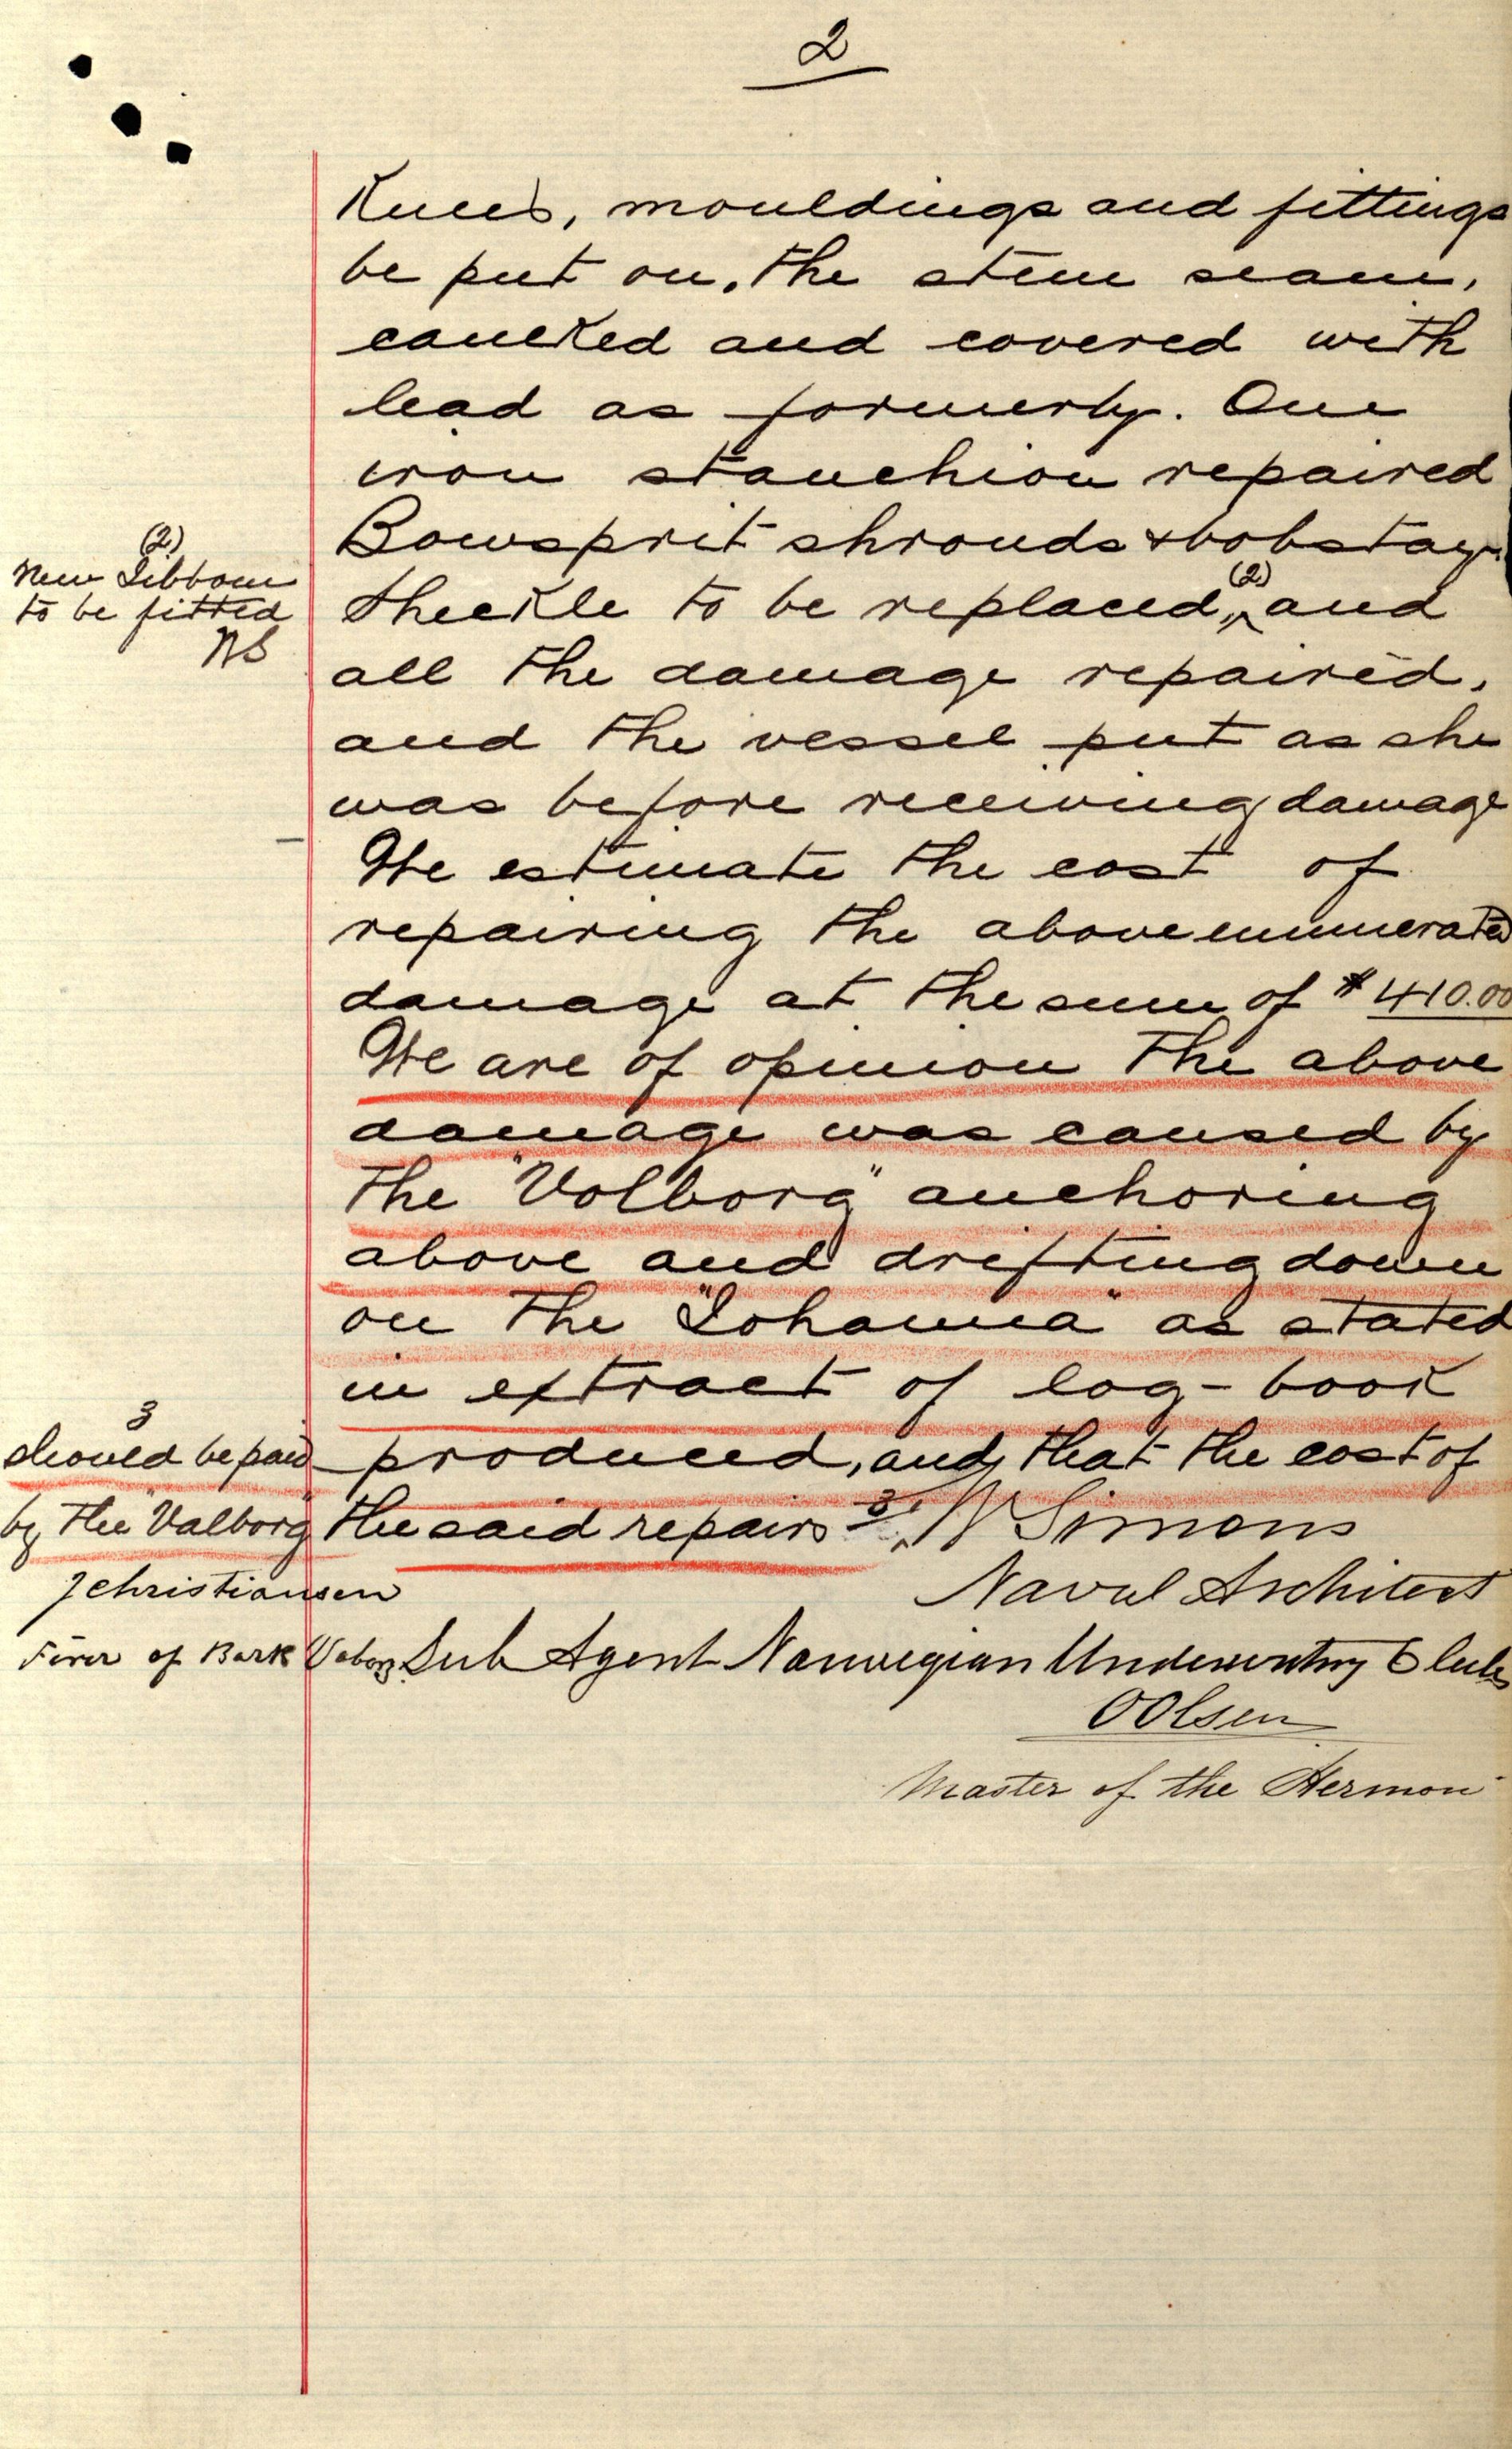 2
Knees, mouldings and fittings
be put on. The stem seam,
caulked and covered with
lead as formerly. One
iron stanchion repaired
Bowsprit shrouds & bobstay
(2)
New Jibboom
to be fitted
NS
sheckle to be replaced, (2) and
all the damage repaired,
and the vessel put as she
was before receiving damage
We estimate the cost of
repairing the above enumerated
damage at the sum of $410.00
We are of opinion the above
damage was caused by
the "Volborg" anchoring
above and drifting down
on the "Johanna" as stated
in extract of log-book
produced, and, that the cost of
the said repairs 3
3
should be paid
by the "Valborg"
N Simons
Naval Architect
J Christiansen
of Bark
Sub Agent Norwegian Underwriting Club
O Olsen
Master of the Hermon